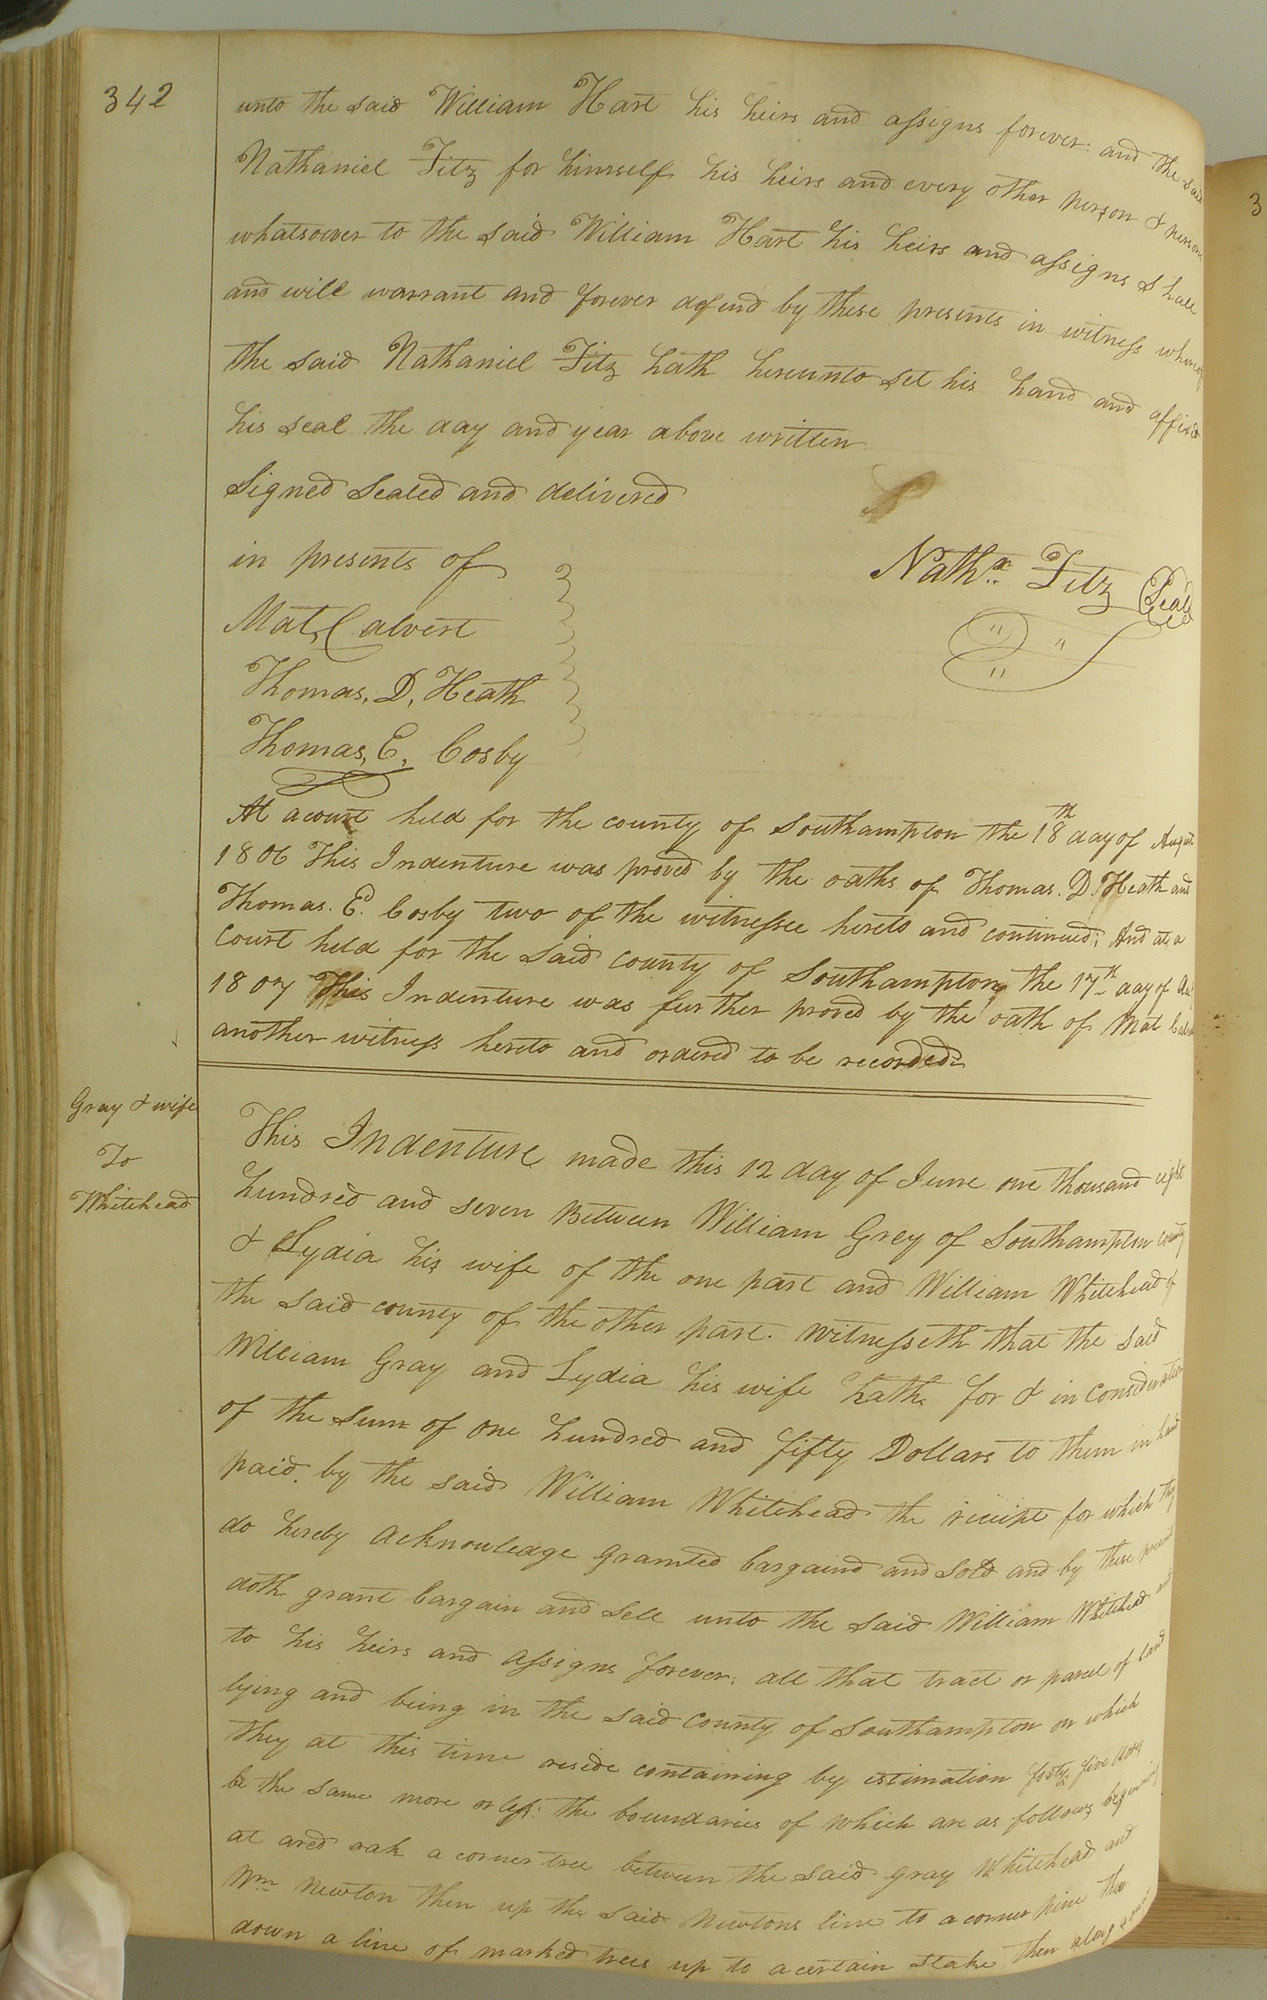 342
unto the said William Hart his heirs and assigns forever: and the said
Nathaniel Fitz for himself his heirs and every other person & persons
whatsoever to the said William Hart his heirs and assigns shall
and will warrant and forever defend by these presents in witness whereof
the said Nathaniel Fitz hath hereunto set his hand and affixed
his seal the day and year above written
Signed Sealed and delivered
in presents of
Nathn. Fitz Seal
Mat, Calvert
Thomas, D, Heath
Thomas, E, Cosby
At a court held for the county of Southampton the 18th day of August
1806 This Indenture was proved by the oaths of Thomas. D. Heath and
Thomas. E. Cosby two of the witnesses hereto and continued; And at a
Court held for the said county of Southampton the 17th day of
1807 This Indenture was further proved by the oath of Mat
another witness hereto and ordered to be recorded
Gray & wife
To
Whitehead
This Indenture made this 12 day of June one thousand eight
hundred and seven Between William Grey of Southampton county
& Lydia his wife of the one part and William Whitehead of
the said county of the other part. Witnesseth that the said
William Gray and Lydia his wife hath for & in Consideration
of the Sum of one hundred and fifty Dollars to them in hand
paid by the said William Whitehead the receipt for which they
do hereby acknowledge granted bargaind and Sold and by these presents
doth grant bargain and Sell unto the said William Whitehead and
to his heirs and assigns forever; all that tract or parcel of land
lying and being in the said County of Southampton on which
they at this time reside containing by estimation forty five acres
be the same more or less: the boundaries of which are as follows beginning
at a red oak a corner tree between the said gray Whitehead and
Wm Newton then up the said Newtons line to a corner pine then
down a line of marked trees up to a certain Stake then along
3